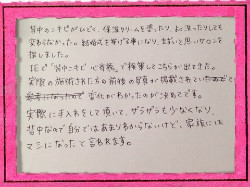 背中のニキビがひどく、保湿クリームを塗ったり、お酒ったりしても
変わらなかった。結婚式を挙げる事になり、まずいと思いサロンを
探しました。
ITで「背中ニキビ 心斎橋」で検索してこちらが出てきた。
実際の施術された方の前後の写真が掲載されていたので
変化がわかったのが決めてです。
実際に手入をして頂いて、ザラザラも少なくなり、
背中なので自分ではあまりわからないけど、家族には
マシになったと言われます。